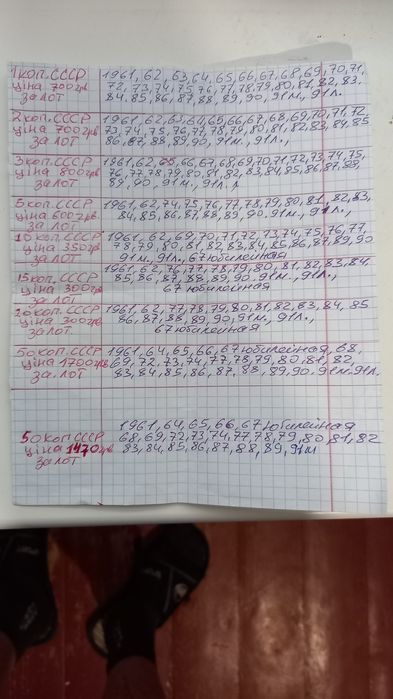 1 коп. СССР 1961, 62, 63, 64, 65, 66, 67, 68, 69, 70, 71,
ціна 700 грв 72, 73, 74, 75, 76, 77, 78, 79, 80, 81, 82, 83,
за лот 84, 85, 86, 87, 88, 89, 90, 91м., 91л.
2 коп. СССР 1961, 62, 63, 64, 65, 66, 67, 68, 69, 70, 71, 72,
ціна 700 грв 73, 74, 75, 76, 77, 78, 79, 80, 81, 82, 83, 84, 85
за лот 86, 87, 88, 89, 90, 91м., 91л.,
3 коп. СССР 1961, 62, 65, 66, 67, 68, 69, 70, 71, 72, 73, 74, 75,
ціна 800 грв. 76, 77, 78, 79, 80, 81, 82, 83, 84, 85, 86, 87, 88,
за лот 89, 90, 91м., 91л.
5 коп. СССР 1961, 62, 74, 75, 76, 77, 78, 79, 80, 81, 82, 83,
ціна 600 грв. 84, 85, 86, 87, 88, 89, 90, 91м., 91л.,
за лот
10 коп. СССР 1961, 62, 69, 70, 71, 72, 73, 74, 75, 76, 77,
ціна 350 грв 78, 79, 80, 81, 82, 83, 84, 85, 86, 87, 89, 90
за лот 91м., 91л., 67 юбилейная
15 коп. СССР 1961, 62, 76, 77, 78, 79, 80, 81, 82, 83, 84,
ціна 300 грв 85, 86, 87, 88, 89, 90, 91м., 91л.,
за лот 67 юбилейная
20 коп. СССР 1961, 62, 77, 78, 79, 80, 81, 82, 83, 84, 85
ціна 300 грв 86, 87, 88, 89, 90, 91м., 91л.,
за лот 67 юбилейная
50 коп. СССР 1961, 64, 65, 66, 67 юбилейная, 68,
ціна 1700 грв 69, 72, 73, 74, 77, 78, 79, 80, 81, 82
за лот 83, 84, 85, 86, 87, 88, 89, 90, 91м. 91л.
1961, 64, 65, 66, 67 юбилейная
50 коп СССР 68, 69, 72, 73, 74, 77, 78, 79, 80, 81, 82
ціна 1470 грв 83, 84, 85, 86, 87, 88, 89, 91м
за лот